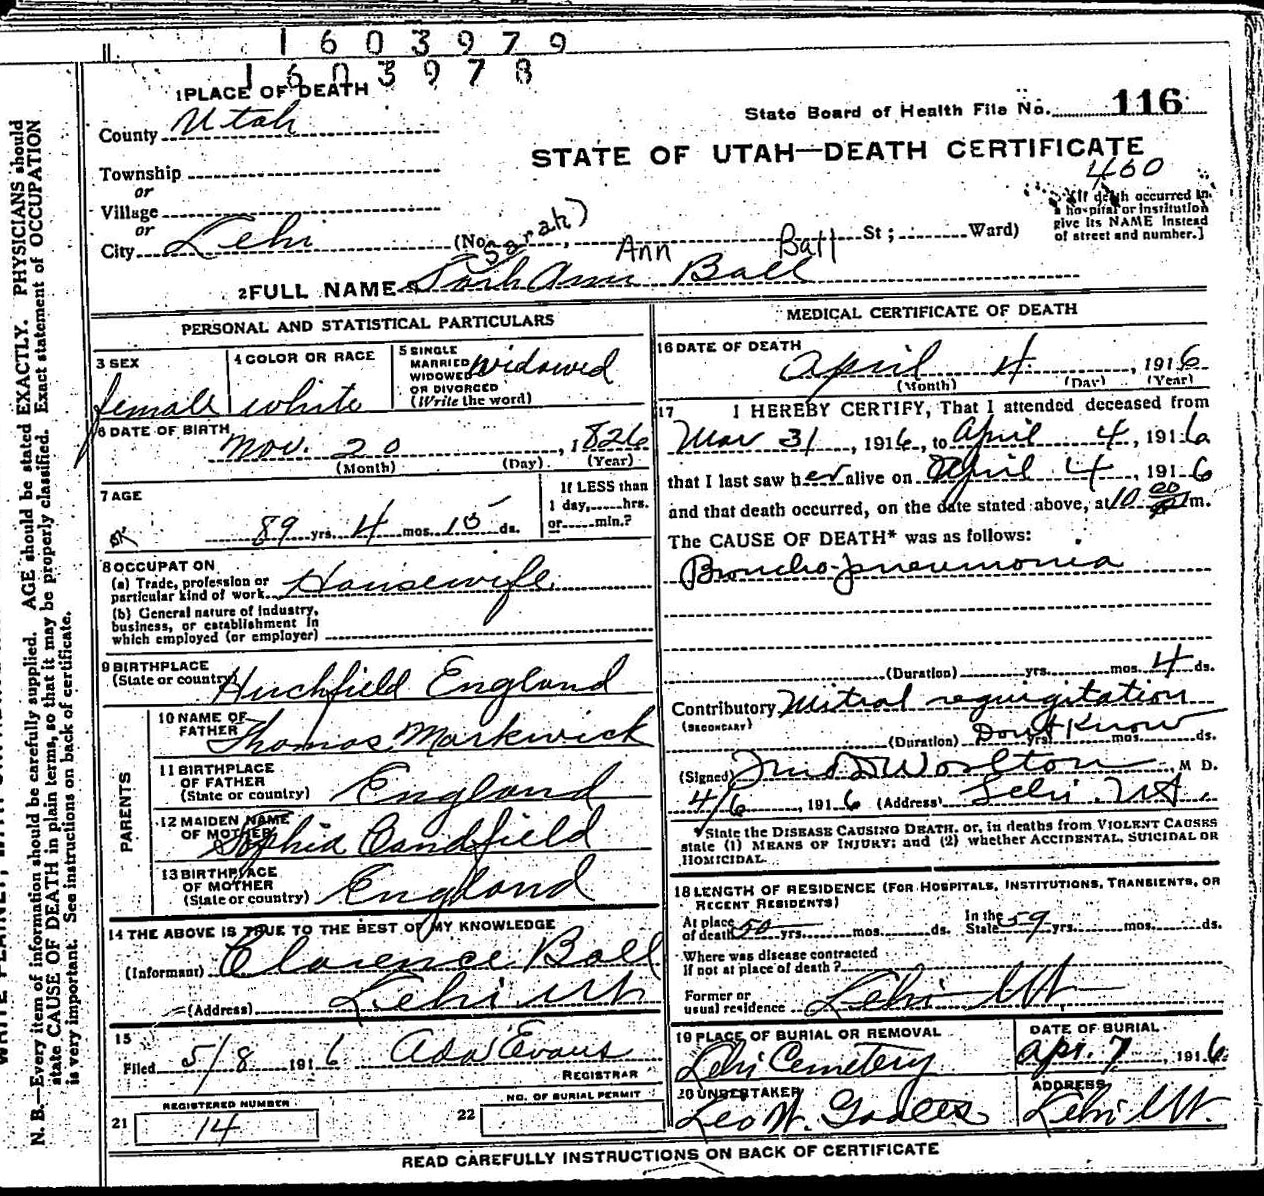 1603979
1603978
1 PLACE OF DEATH
State Board of Health File No. 116
County Utah
STATE OF UTAH—DEATH CERTIFICATE
460
Township
or
Village
or
City Lehi (No. St; Ward)
[If death occurred in
a hospital or institution
give its NAME instead
of street and number.]
Sarah) Ann Ball
2 FULL NAME Sarh Ann Ball
PERSONAL AND STATISTICAL PARTICULARS
3 SEX
female
4 COLOR OR RACE
white
5 SINGLE
MARRIED
WIDOWED
OR DIVORCED
(Write the word)
widowed
6 DATE OF BIRTH
Nov. 20, 1826
(Month) (Day) (Year)
7 AGE
89 yrs. 4 mos. 15 ds.
If LESS than
1 day, hrs.
or min.?
8 OCCUPATION
(a) Trade, profession or
particular kind of work Housewife
(b) General nature of industry,
business, or establishment in
which employed (or employer)
9 BIRTHPLACE
(State or country) Huchfield England
PARENTS
10 NAME OF
FATHER Thomas Markwick
11 BIRTHPLACE
OF FATHER
(State or country) England
12 MAIDEN NAME
OF MOTHER Sophia Candfield
13 BIRTHPLACE
OF MOTHER
(State or country) England
14 THE ABOVE IS TRUE TO THE BEST OF MY KNOWLEDGE
(Informant) Clarence Ball
(Address) Lehi Ut
15
Filed 5/8 1916 Ada Evans
REGISTRAR
21 REGISTERED NUMBER
14
22 NO. OF BURIAL PERMIT
MEDICAL CERTIFICATE OF DEATH
16 DATE OF DEATH
April 4, 1916
(Month) (Day) (Year)
17 I HEREBY CERTIFY, That I attended deceased from
Mar 31, 1916, to April 4, 1916
that I last saw her alive on April 4, 1916
and that death occurred, on the date stated above, at 10 00 m.
The CAUSE OF DEATH* was as follows:
Broncho-pneumonia
(Duration) yrs. mos. 4 ds.
Contributory Mitral regurgitation
(SECONDARY)
(Duration) Dont Know yrs. mos. ds.
(Signed) M D.
4/6, 1916 (Address) Lehi. Ut.
*State the DISEASE CAUSING DEATH, or, in deaths from VIOLENT CAUSES
state (1) MEANS OF INJURY; and (2) whether ACCIDENTAL, SUICIDAL OR
HOMICIDAL.
18 LENGTH OF RESIDENCE (FOR HOSPITALS, INSTITUTIONS, TRANSIENTS, OR
RECENT RESIDENTS)
At place
of death 50 yrs. mos. ds.
In the
State 59 yrs. mos. ds.
Where was disease contracted
if not at place of death?
Former or
usual residence Lehi Ut
19 PLACE OF BURIAL OR REMOVAL
Lehi Cemetery
DATE OF BURIAL
Apr. 7, 1916
20 UNDERTAKER
Leo W. Goates
ADDRESS
Lehi Ut.
READ CAREFULLY INSTRUCTIONS ON BACK OF CERTIFICATE
N. B.—Every item of information should be carefully supplied. AGE should be stated EXACTLY. PHYSICIANS should
state CAUSE OF DEATH in plain terms, so that it may be properly classified. Exact statement of OCCUPATION
is very important. See instructions on back of certificate.